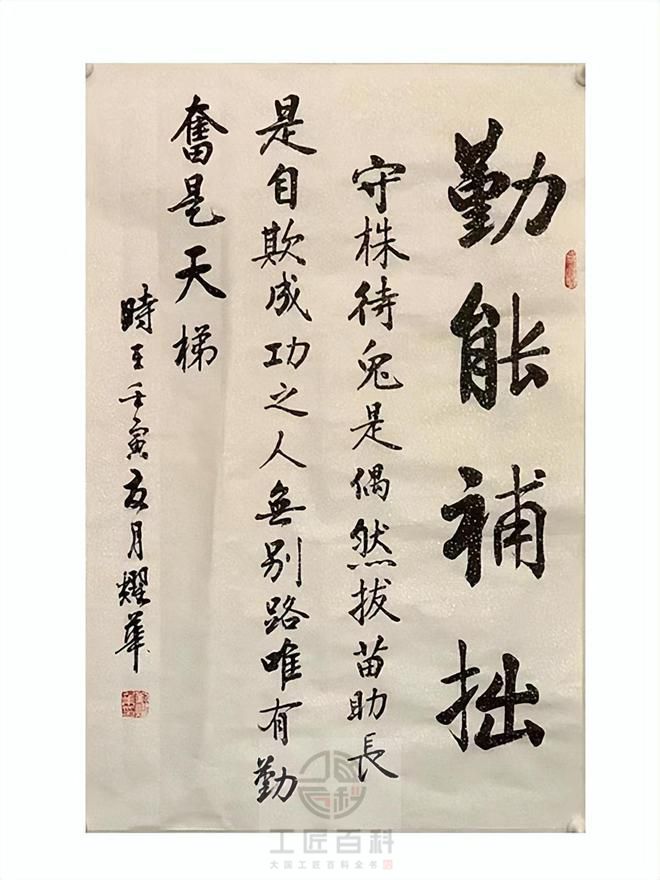 勤能補拙
守株待兔是偶然拔苗助長
是自欺成功之人無別路唯有勤
奮是天梯
時至壬寅夏月耀華
工匠百科
大国工匠百科全书